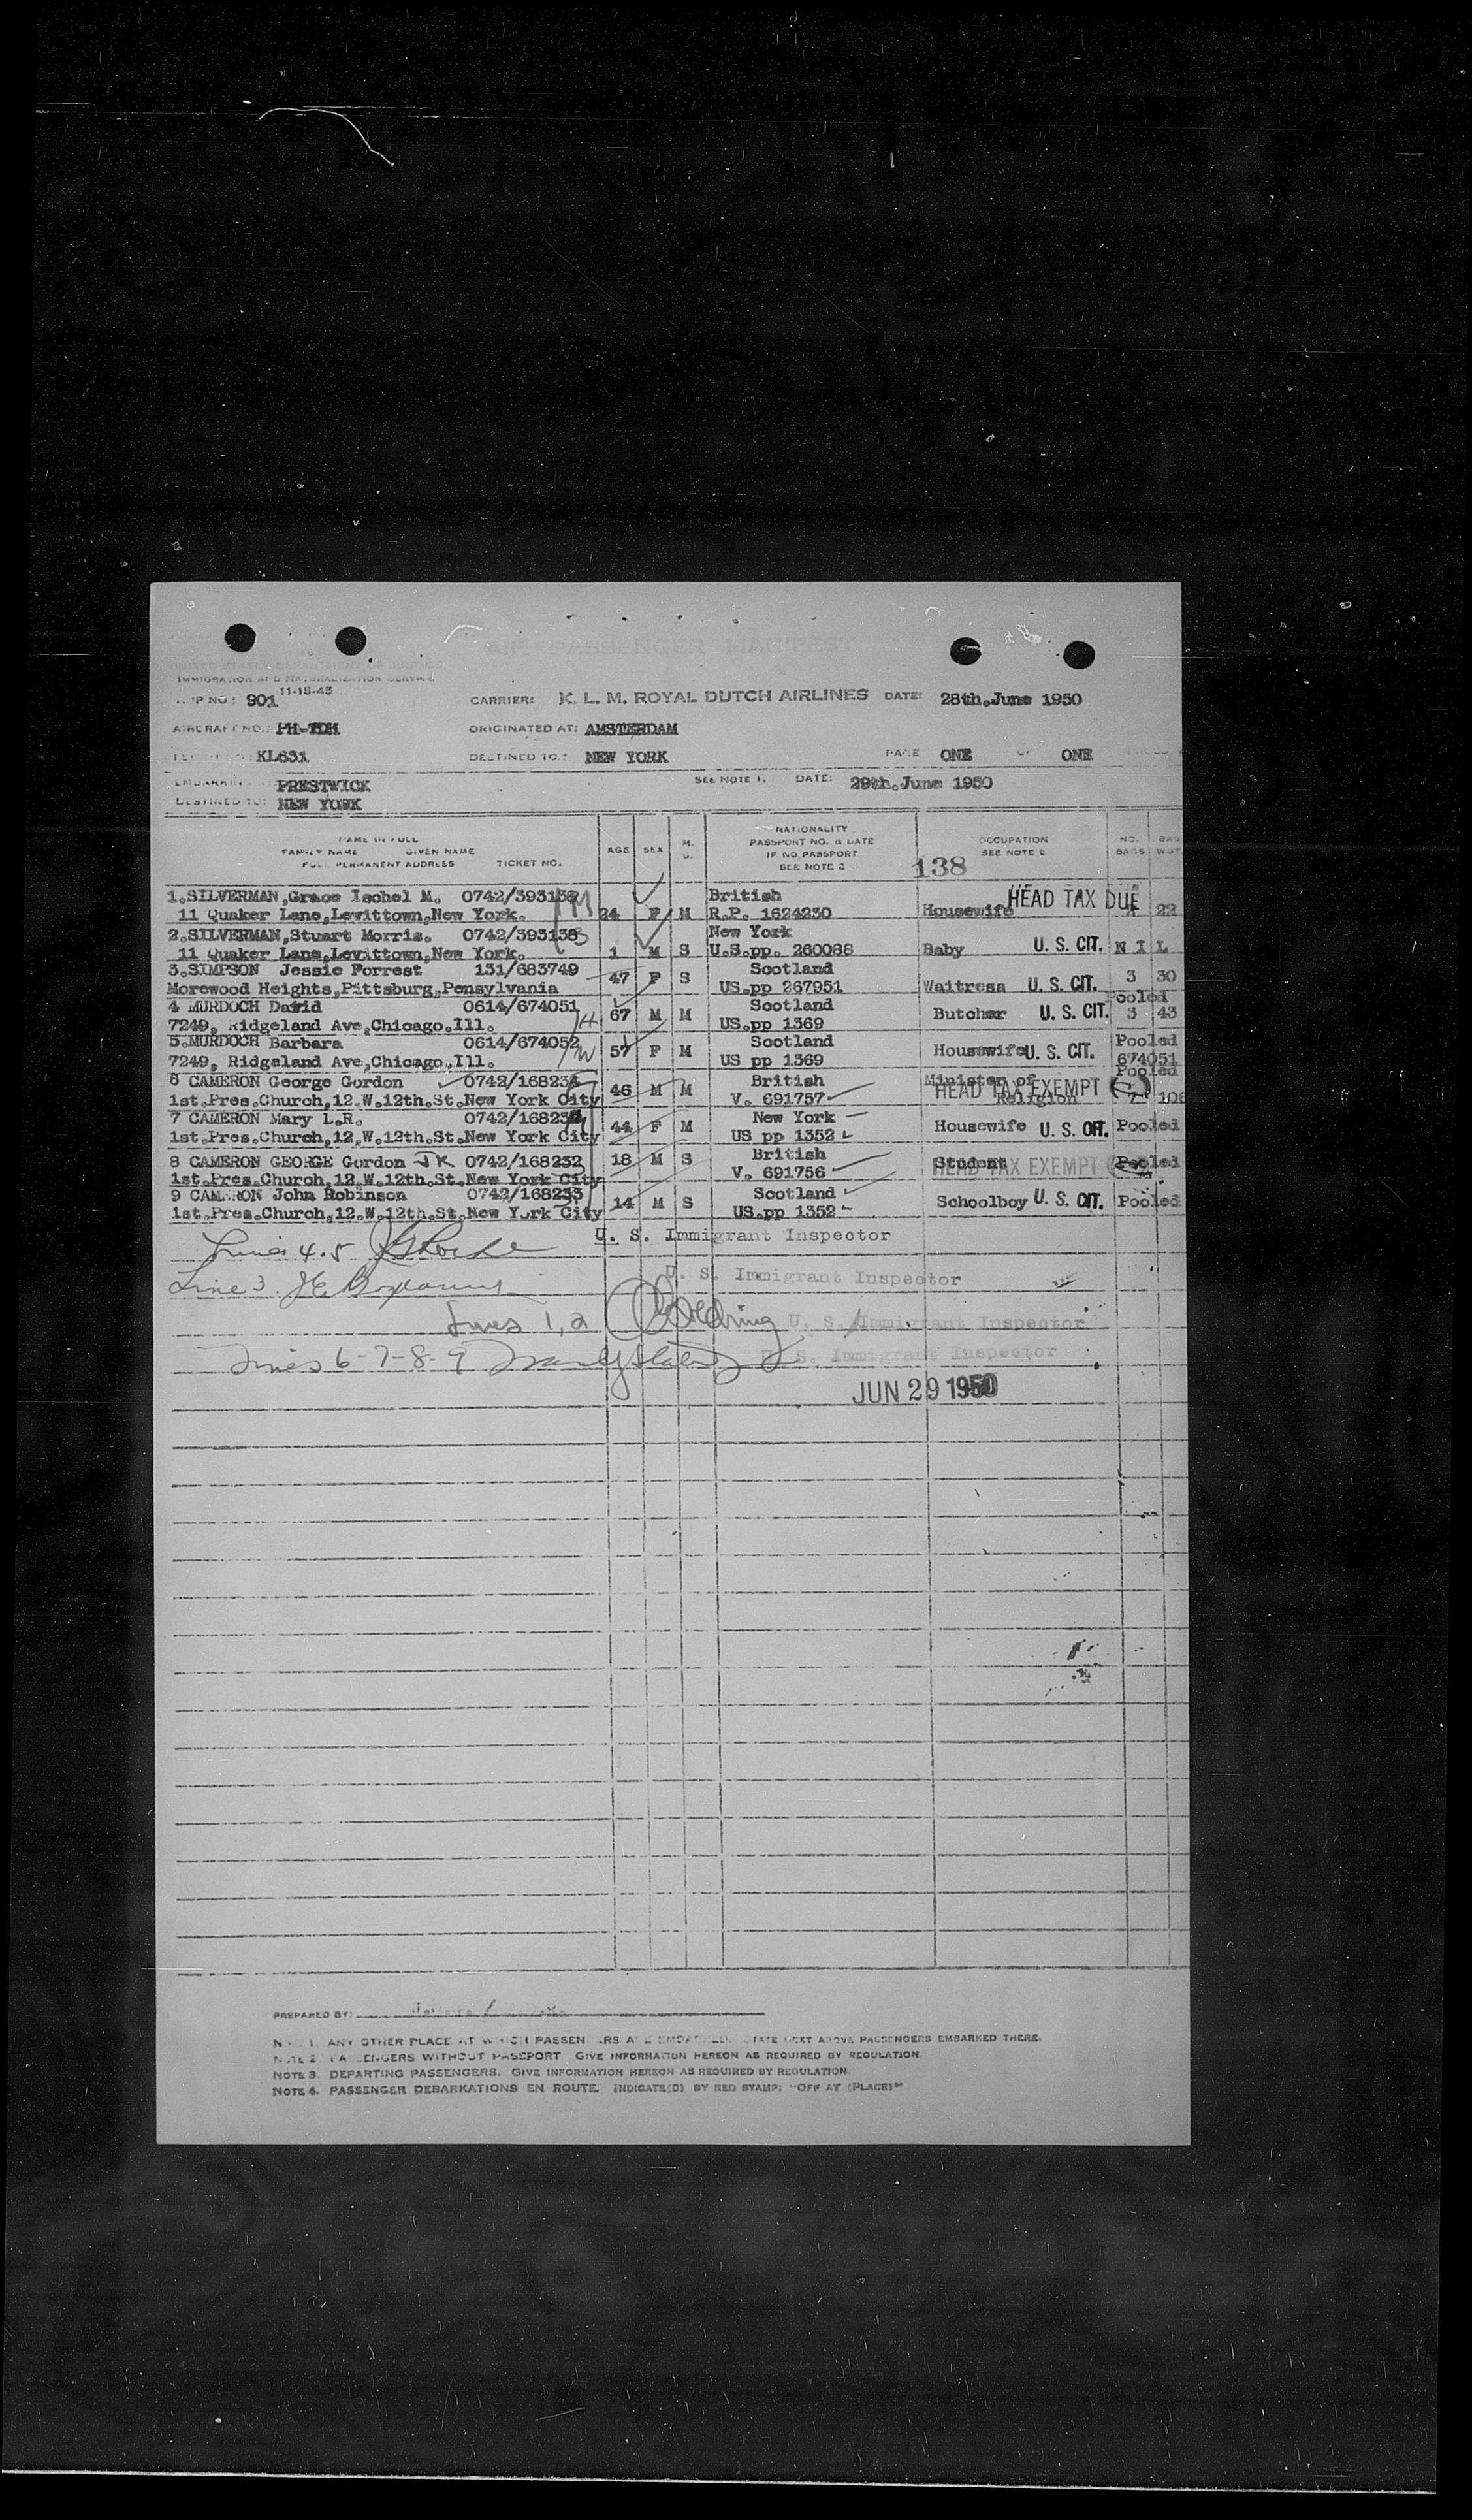 AIR PASSENGER MANIFEST
UNITED STATES DEPARTMENT OF JUSTICE
IMMIGRATION AND NATURALIZATION SERVICE
11-15-45
TRIP NO.: 901 CARRIER: K. L. M. ROYAL DUTCH AIRLINES DATE: 28th.June 1950
AIRCRAFT NO.: PH-TDH ORIGINATED AT: AMSTERDAM
KL631 DESTINED TO: NEW YORK PAGE ONE OF ONE
PRESTWICK SEE NOTE 1. DATE: 29th.June 1950
DESTINED TO: NEW YORK
NAME IN FULL
FAMILY NAME GIVEN NAME
FULL PERMANENT ADDRESS TICKET NO.
AGE SEX
NATIONALITY
PASSPORT NO. & DATE
IF NO PASSPORT
SEE NOTE 2
OCCUPATION
SEE NOTE 2
NO. BAGS
138
1.SILVERMAN,Grace Isobel M. 0742/393136 British HEAD TAX DUE
11 Quaker Lane,Levittown,New York. 24 F M R.P. 1624230 Housewife 22
2.SILVERMAN,Stuart Morris. 0742/393138 New York
11 Quaker Lane,Levittown,New York. 1 M S U.S.pp. 260088 Baby U. S. CIT. N I L
3.SIMPSON Jessie Forrest 131/683749 47 F S Scotland 3 30
Morewood Heights,Pittsburg,Pensylvania US.pp 267951 Waitress U. S. CIT.
4 MURDOCH David 0614/674051 67 M M Scotland Pooled
7249, Ridgeland Ave,Chicago.Ill. US.pp 1369 Butcher U. S. CIT. 3 43
5.MURDOCH Barbara 0614/674052 57 F M Scotland Pooled
7249, Ridgeland Ave,Chicago.,Ill. US pp 1369 Housewife U. S. CIT. 674051
6 CAMERON George Gordon 0742/16823 46 M M British Minister of Pooled
1st.Pres.Church,12.W.12th.St.New York City V. 691757 Religion HEAD TAX EXEMPT 7 106
7 CAMERON Mary L.R. 0742/16823 44 F M New York
1st.Pres.Church,12,W.12th.St.New York City US pp 1352 Housewife U. S. CIT. Pooled
8 CAMERON GEORGE Gordon JR 0742/168232 18 M S British
1st.Pres.Church,12.W.12th.St.New York City V. 691756 Student HEAD TAX EXEMPT Pooled
9 CAMERON John Robinson 0742/168233 14 M S Scotland
1st.Pres.Church,12.W.12th.St.New York City US.pp 1352 Schoolboy U. S. CIT. Pooled
Lines 4.5 U. S. Immigrant Inspector
Line 3. U. S. Immigrant Inspector
Lines 1,2 U. S. Immigrant Inspector
Lines 6-7-8-9 U. S. Immigrant Inspector
JUN 29 1950
PREPARED BY:
NOTE 1. ANY OTHER PLACE AT WHICH PASSENGERS ARE EMBARKED, STATE NEXT ABOVE PASSENGERS EMBARKED THERE.
NOTE 2. PASSENGERS WITHOUT PASSPORT. GIVE INFORMATION HEREON AS REQUIRED BY REGULATION.
NOTE 3. DEPARTING PASSENGERS. GIVE INFORMATION HEREON AS REQUIRED BY REGULATION.
NOTE 4. PASSENGER DEBARKATIONS EN ROUTE, INDICATE(D) BY RED STAMP: "OFF AT (PLACE)"